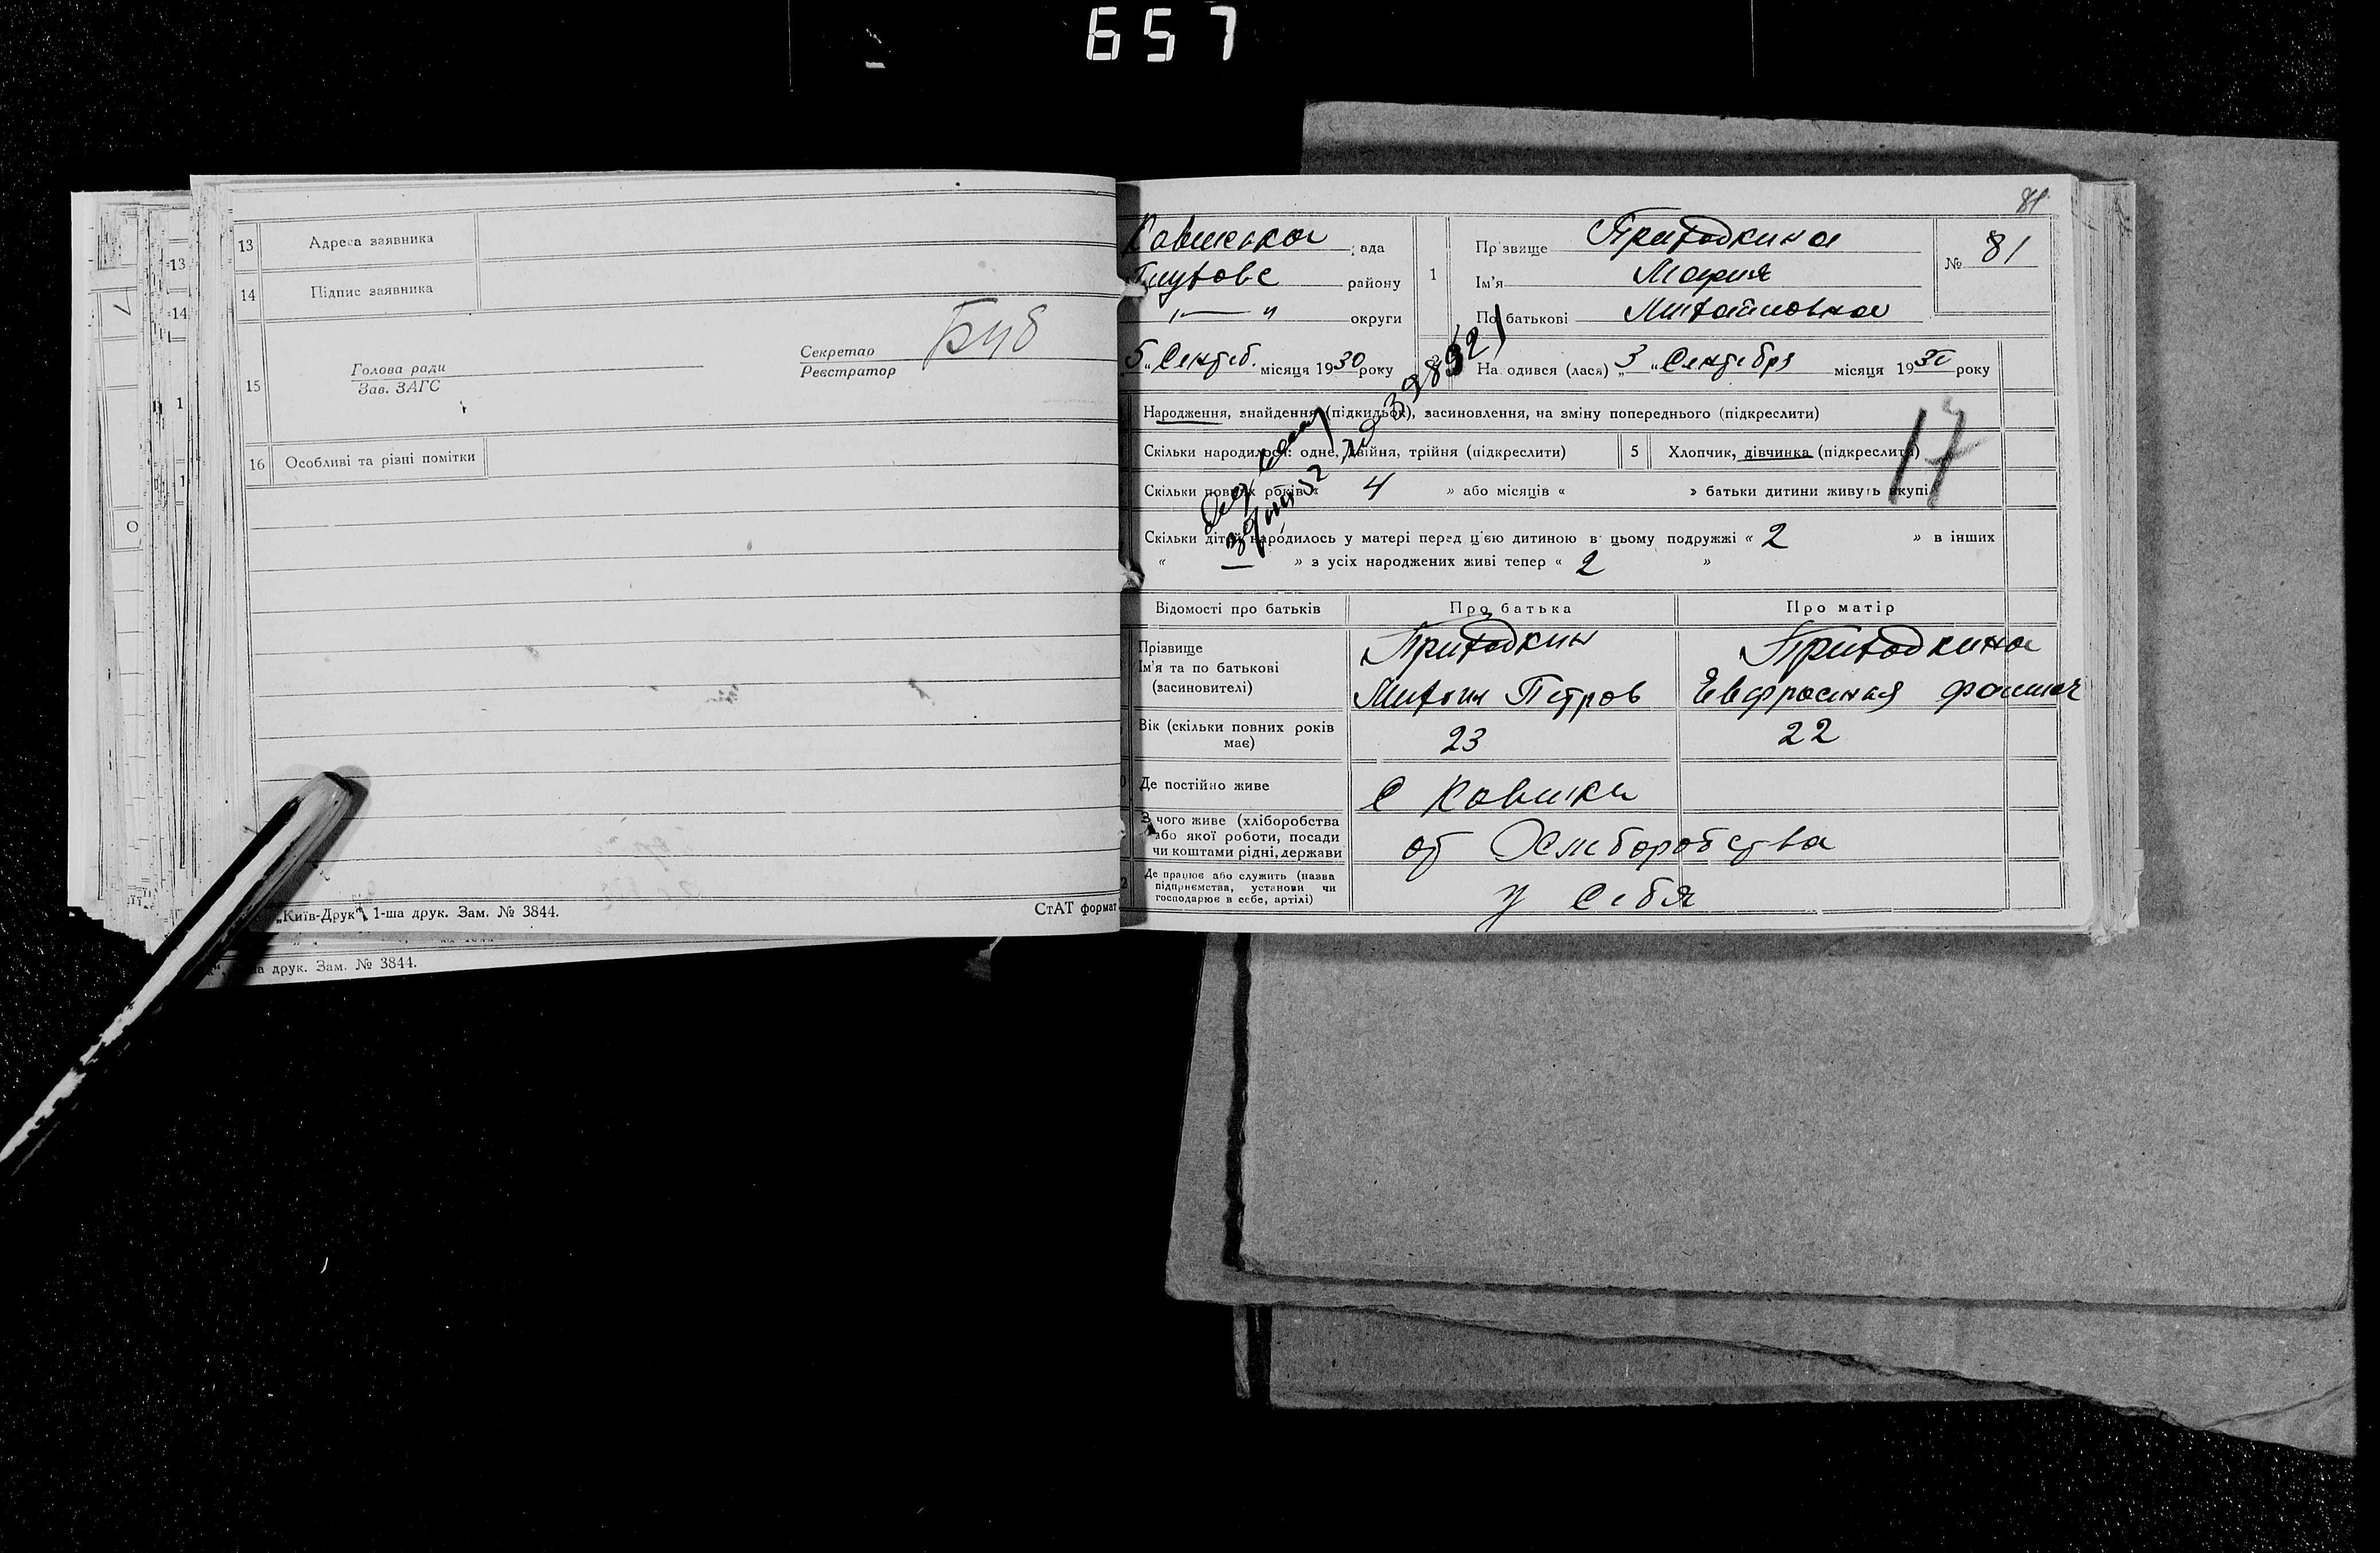 657
13 Адреса заявника
14 Підпис заявника
15 Голова ради
Зав. ЗАГС
Секретар
Реєстратор
16 Особливі та різні помітки
„Київ-Друк“, 1-ша друк. Зам. № 3844.
СтАТ формат
друк. Зам. № 3844.
81
рада
району
округи
1
Прізвище Приходкина
Ім'я Мария
По батькові Михайловна
№ 81
5 „Сентеб. місяця 1930 року
На одився (лася) „3 “ Сентебря місяця 1930 року
Народження, знайдення (підкидьок), засиновлення, на зміну попереднього (підкреслити)
Скільки народилося: одне, двійня, трійня (підкреслити)
5 Хлопчик, дівчинка (підкреслити)
17
Скільки повних років « 4 » або місяців « » батьки дитини живуть вкупі
Скільки дітей народилось у матері перед цією дитиною в цьому подружжі « 2 » в інших
« — » з усіх народжених живі тепер « 2 »
Відомості про батьків
Про батька
Про матір
Прізвище
Ім'я та по батькові
(засиновителі)
Приходкин
Петров
Приходкина
Евфросиния
Вік (скільки повних років
має)
23
22
Де постійно живе
с Ковшики
З чого живе (хліборобства
або якої роботи, посади
чи коштами рідні, держави
от Хлиборобства
Де працює або служить (назва
підприємства, установи чи
господарює в себе, артілі)
у себя